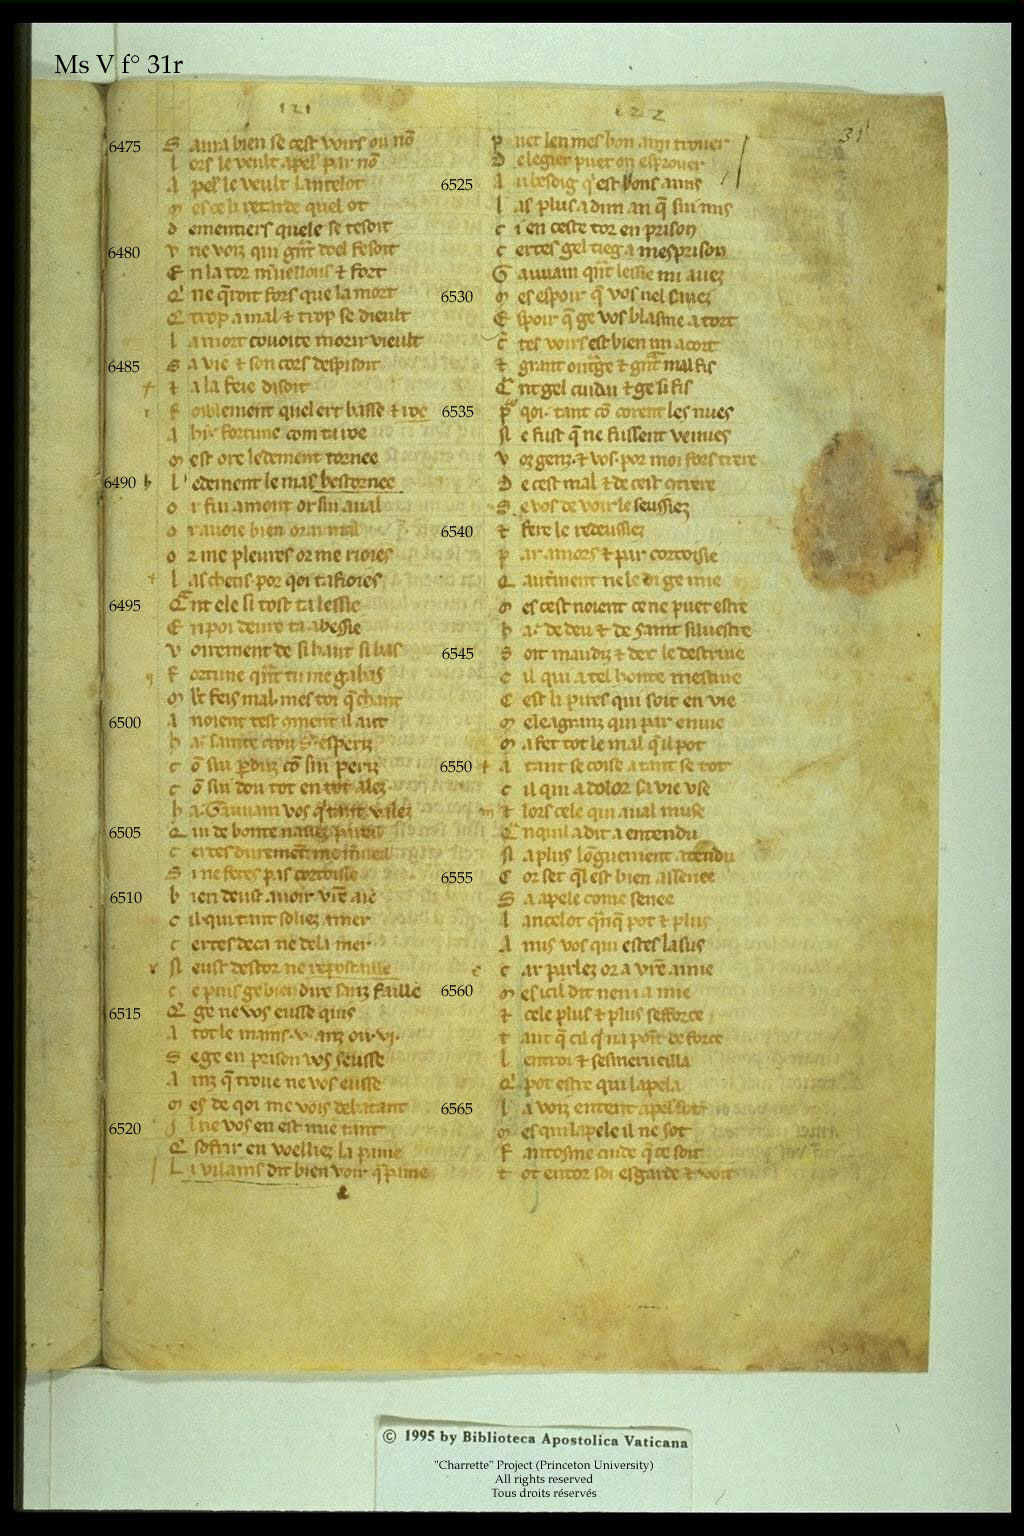 Ms V f° 31r
121
122
31
6475
S aura bien se cest voirs ou nō
l ors le veult apel' par nō
A pel' le veult lancelot
m es ce li retarde quel ot
d ementiers quele se tesoit
6480
v ne voiz qui gnt doel fesoit
E n la tor m'uellous ⁊ fort
Q' ne q̄roit fors que la mort
Q trop a mal ⁊ trop se dieult
l a mort covoite morir vieult
6485
s a vie ⁊ son cors despisoit
⁊ a la feie disoit
f oiblement quel ert basse ⁊ roe
A hiy fortune com ta roe
m est ore ledement tornee
6490
l' edement le mas bestornee
o r fui amont or sui aual
o r auoie bien or ai mal
o r me pleures or me rioies
l as chetis por qoi ta fioies
6495
Q nt ele si tost ta lessie
E n poi deure ta abessie
v oirement de si haut si bas
f ortune qnt tu me gabas
m lt feis mal mes toi q̄ chant
6500
A noient test gment il aut
h a sainte croiz s esperiz
c ō sui pdiz cō sui periz
c ō sui dou tot en tot alez
h a Gauuain vos q' tant valez
6505
Q ui de bonte
c ertes durement me
S i ne fetes pas cortoisie
6510
b ien deust auoir vre aie
c il qui tant soliez amer
c ertes deca ne dela mer
N eust destor ne repostaille
c e puis ge bien dire sanz faille
6515
Q ge ne vos eusse quis
A tot le mains v anz ou vi
S ege en prison vos seusse
A inz q̄ troue ne vos eusse
m es de qoi me vois debatant
6520
l ne vos en est mie tant
Q sofrir en voelliez la paine
L i vilains dit bien voir q paine
p uet len mes bon ami trouer
D e legier puet on esprouer
6525
A u besoig q' est bons amis
l as plus a dun an q̄ sui mis
c i en ceste tor en prison
c ertes gel tieg a mesprison
G auuain qnt lessie mi auez
6530
m es espoir q̄ vos nel sauez
E spoir q̄ ge vos blasme a tort
c tes voirs est bien mi acort
⁊ grant outge ⁊ gnt mal fis
Q nt gel cuidai ⁊ ge si fis
6535
p qoi tant cō corent les nues
N e fust q̄ ne fussent venues
v oz genz ⁊ vos por moi fors trere
D e cest mal ⁊ de cest 9trere
S e vos de voir le seussiez
6540
⁊ fere le redeussiez
p ar amors ⁊ par cortoisie
Q autment ne le di ge mie
m es cest noient ce ne puet estre
h a de deu ⁊ de saint siluestre
6545
S oit maudiz ⁊ dex le destruie
c il qui a tel honte mestuie
C est li pires qui soit en vie
m eleagranz qui par enuie
m a fet tot le mal q̄ il pot
6550
A tant se coise a tant se tot
c il qui a dolor sa vie vse
⁊ lors cele qui aual muse
Q nquil a dit a entendu
N a plus lōguement atendu
6555
C or set ql est bien assenee
S a apele come senee
l ancelot qnq pot ⁊ plus
A mis vos qui estes lasus
c ar parlez or a vre amie
6560
m es icil dit neni a mie
⁊ cele plus ⁊ plus sefforce
t ant q̄ cil q' na pont de force
l entroi ⁊ sesmerueilla
Q' pot estre qui lapela
6565
l a voiz entent apel sot
m es qui lapele il ne sot
F antosme cuide q̄ ce soit
t ot entor soi esgarde ⁊ voit
© 1995 by Biblioteca Apostolica Vaticana
"Charrette" Project (Princeton University)
All rights reserved
Tous droits réservés